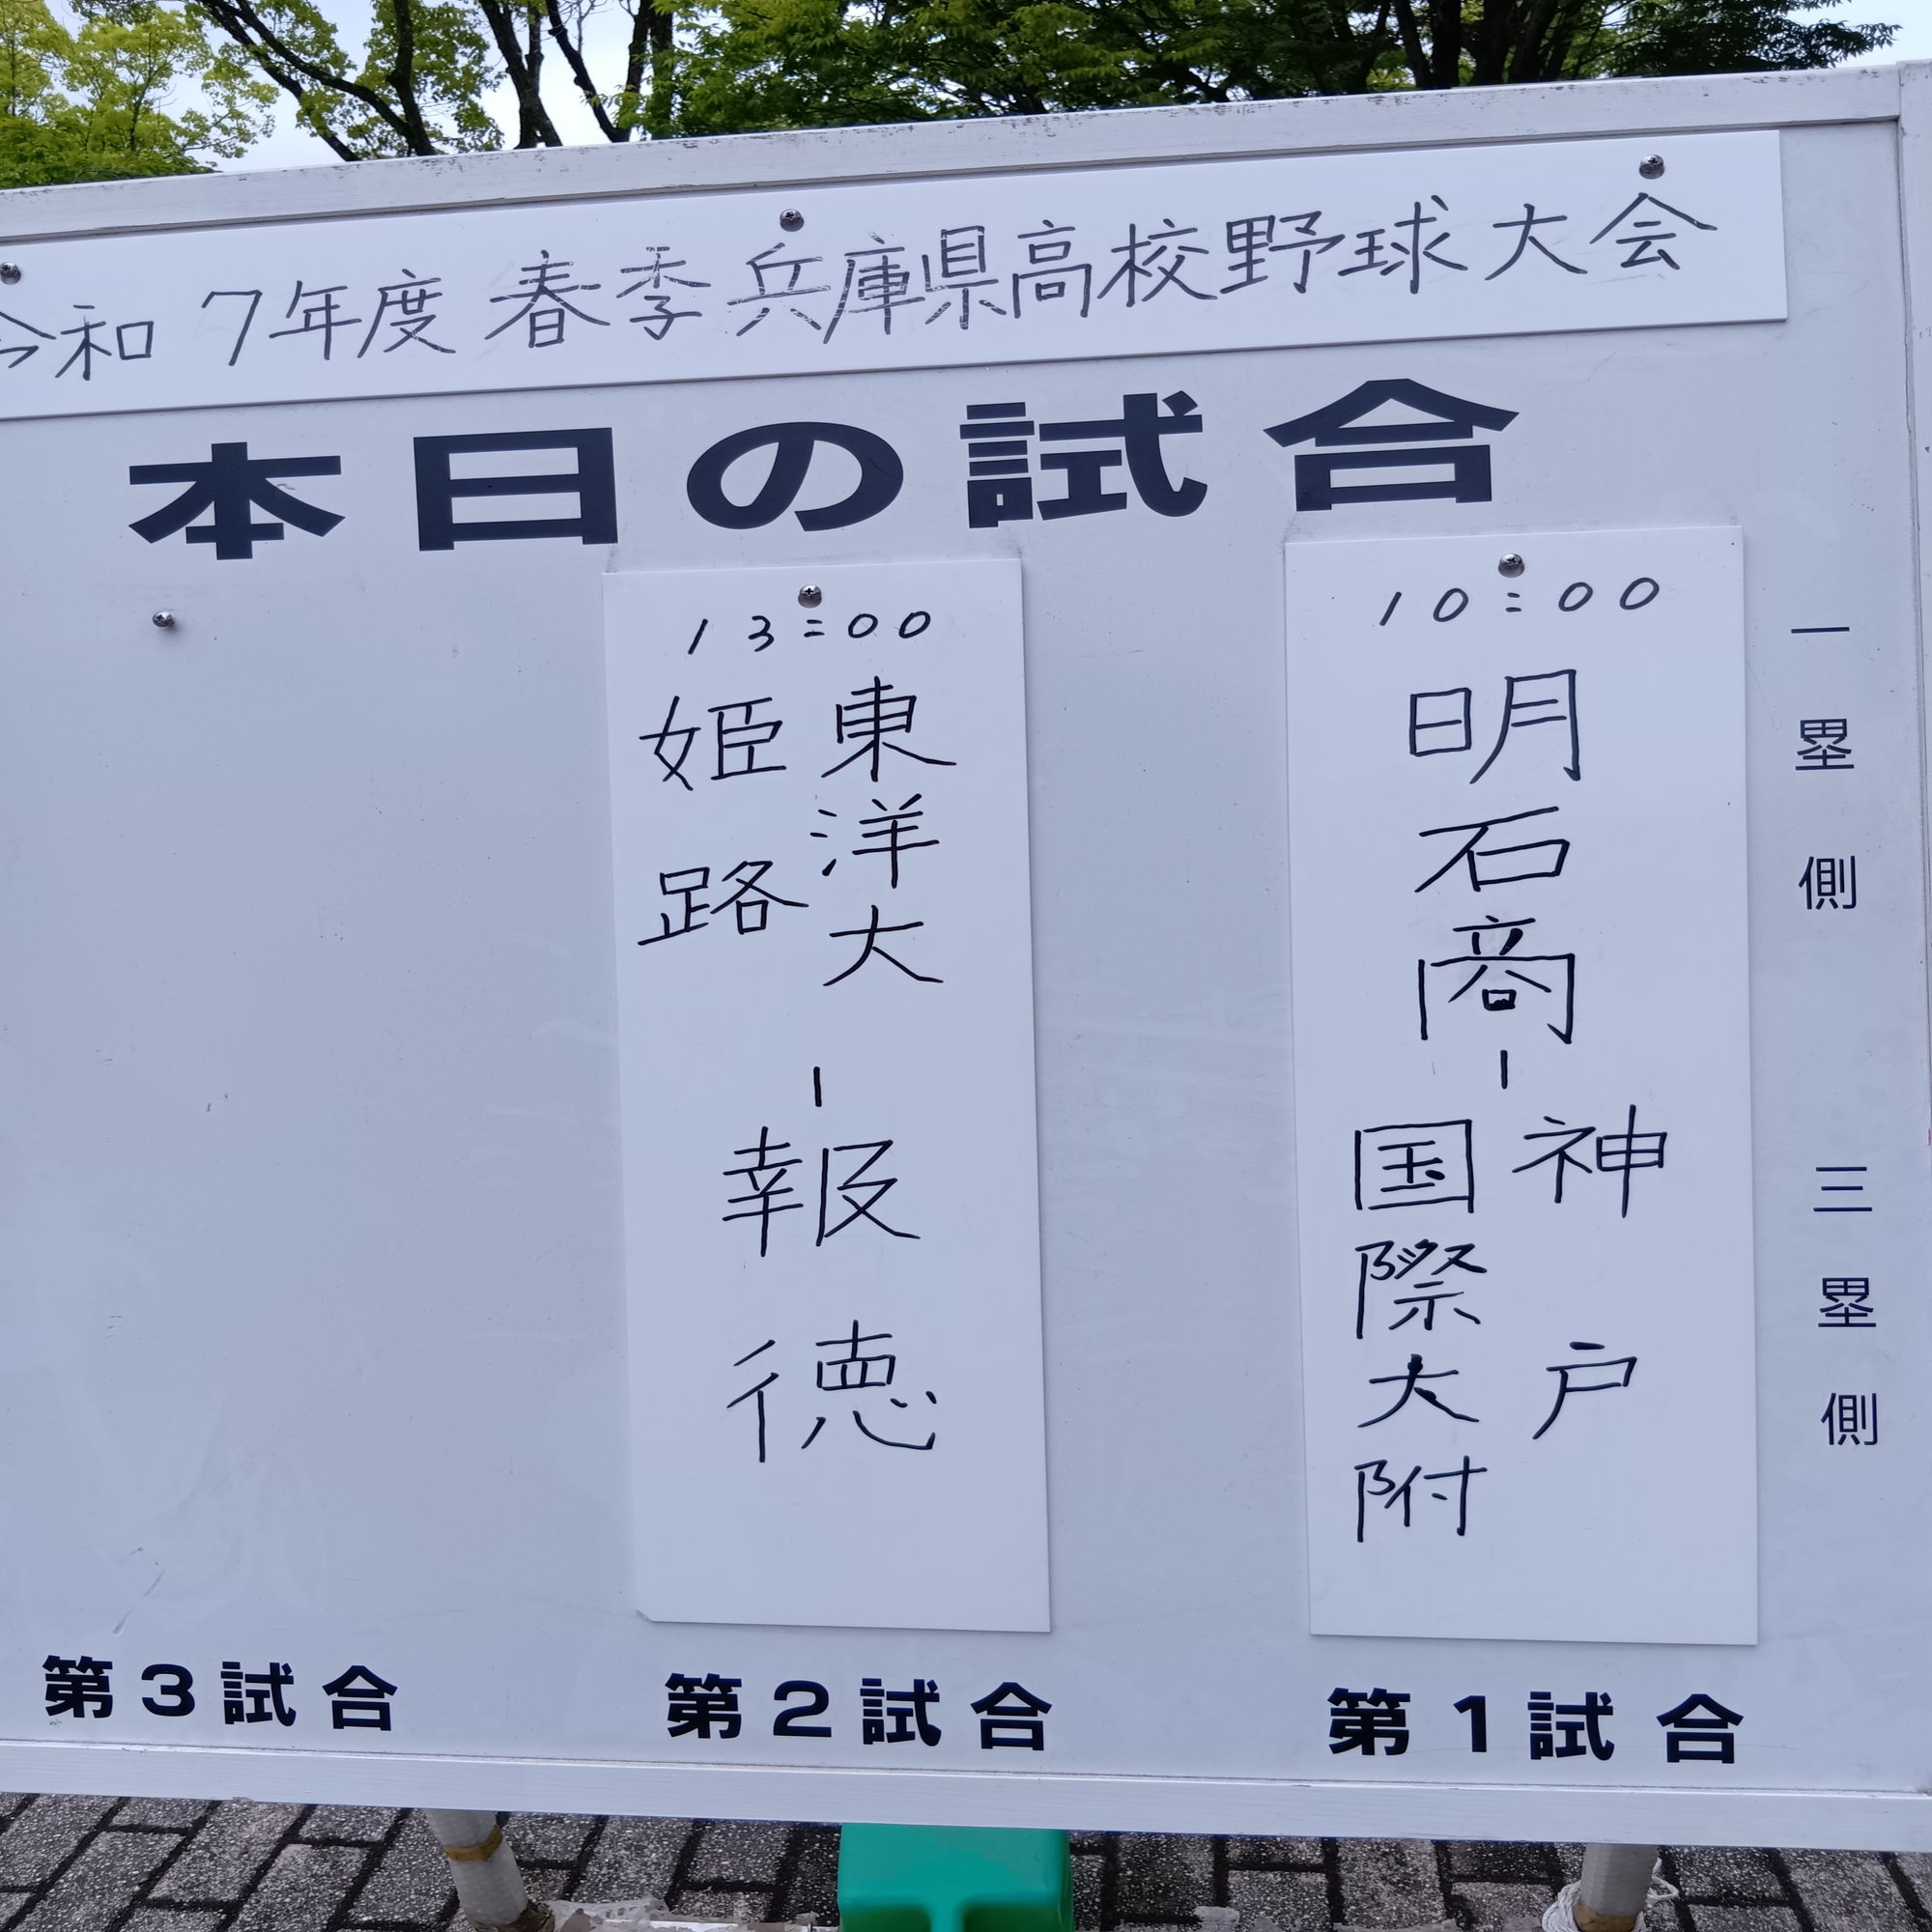 令和7年度 春季兵庫県高校野球大会
本日の試合
一塁側
三塁側
10:00
明石商
-
神戸
国際大附
第1試合
13:00
東洋大
姫路
-
報徳
第2試合
第3試合